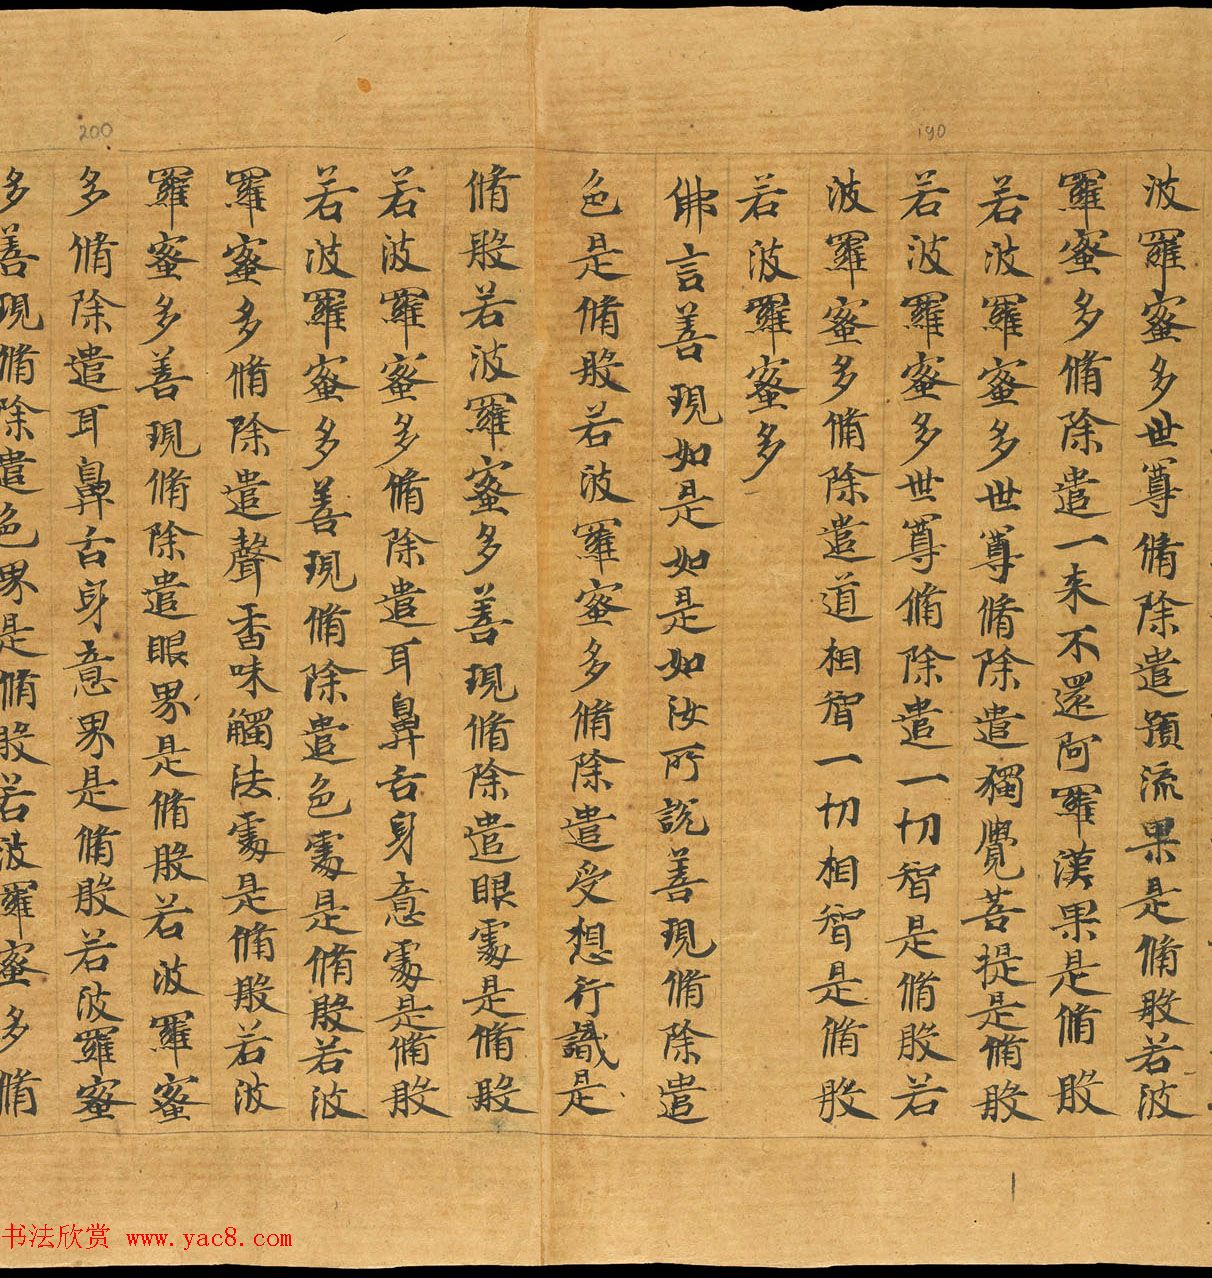 190
200
波羅蜜多世尊脩除遣預流果是脩般若波
羅蜜多脩除遣一來不還阿羅漢果是脩般
若波羅蜜多世尊脩除遣獨覺菩提是脩般
若波羅蜜多世尊脩除遣一切智是脩般若
波羅蜜多脩除遣道相智一切相智是脩般
若波羅蜜多
佛言善現如是如是如汝所說善現脩除遣
色是脩般若波羅蜜多脩除遣受想行識是
脩般若波羅蜜多善現脩除遣眼處是脩般
若波羅蜜多脩除遣耳鼻舌身意處是脩般
若波羅蜜多善現脩除遣色處是脩般若波
羅蜜多脩除遣聲香味觸法處是脩般若波
羅蜜多善現脩除遣眼界是脩般若波羅蜜
多脩除遣耳鼻舌身意界是脩般若波羅蜜
多善現脩除遣色界是脩般若波羅蜜多脩
书法欣赏 www.yac8.com